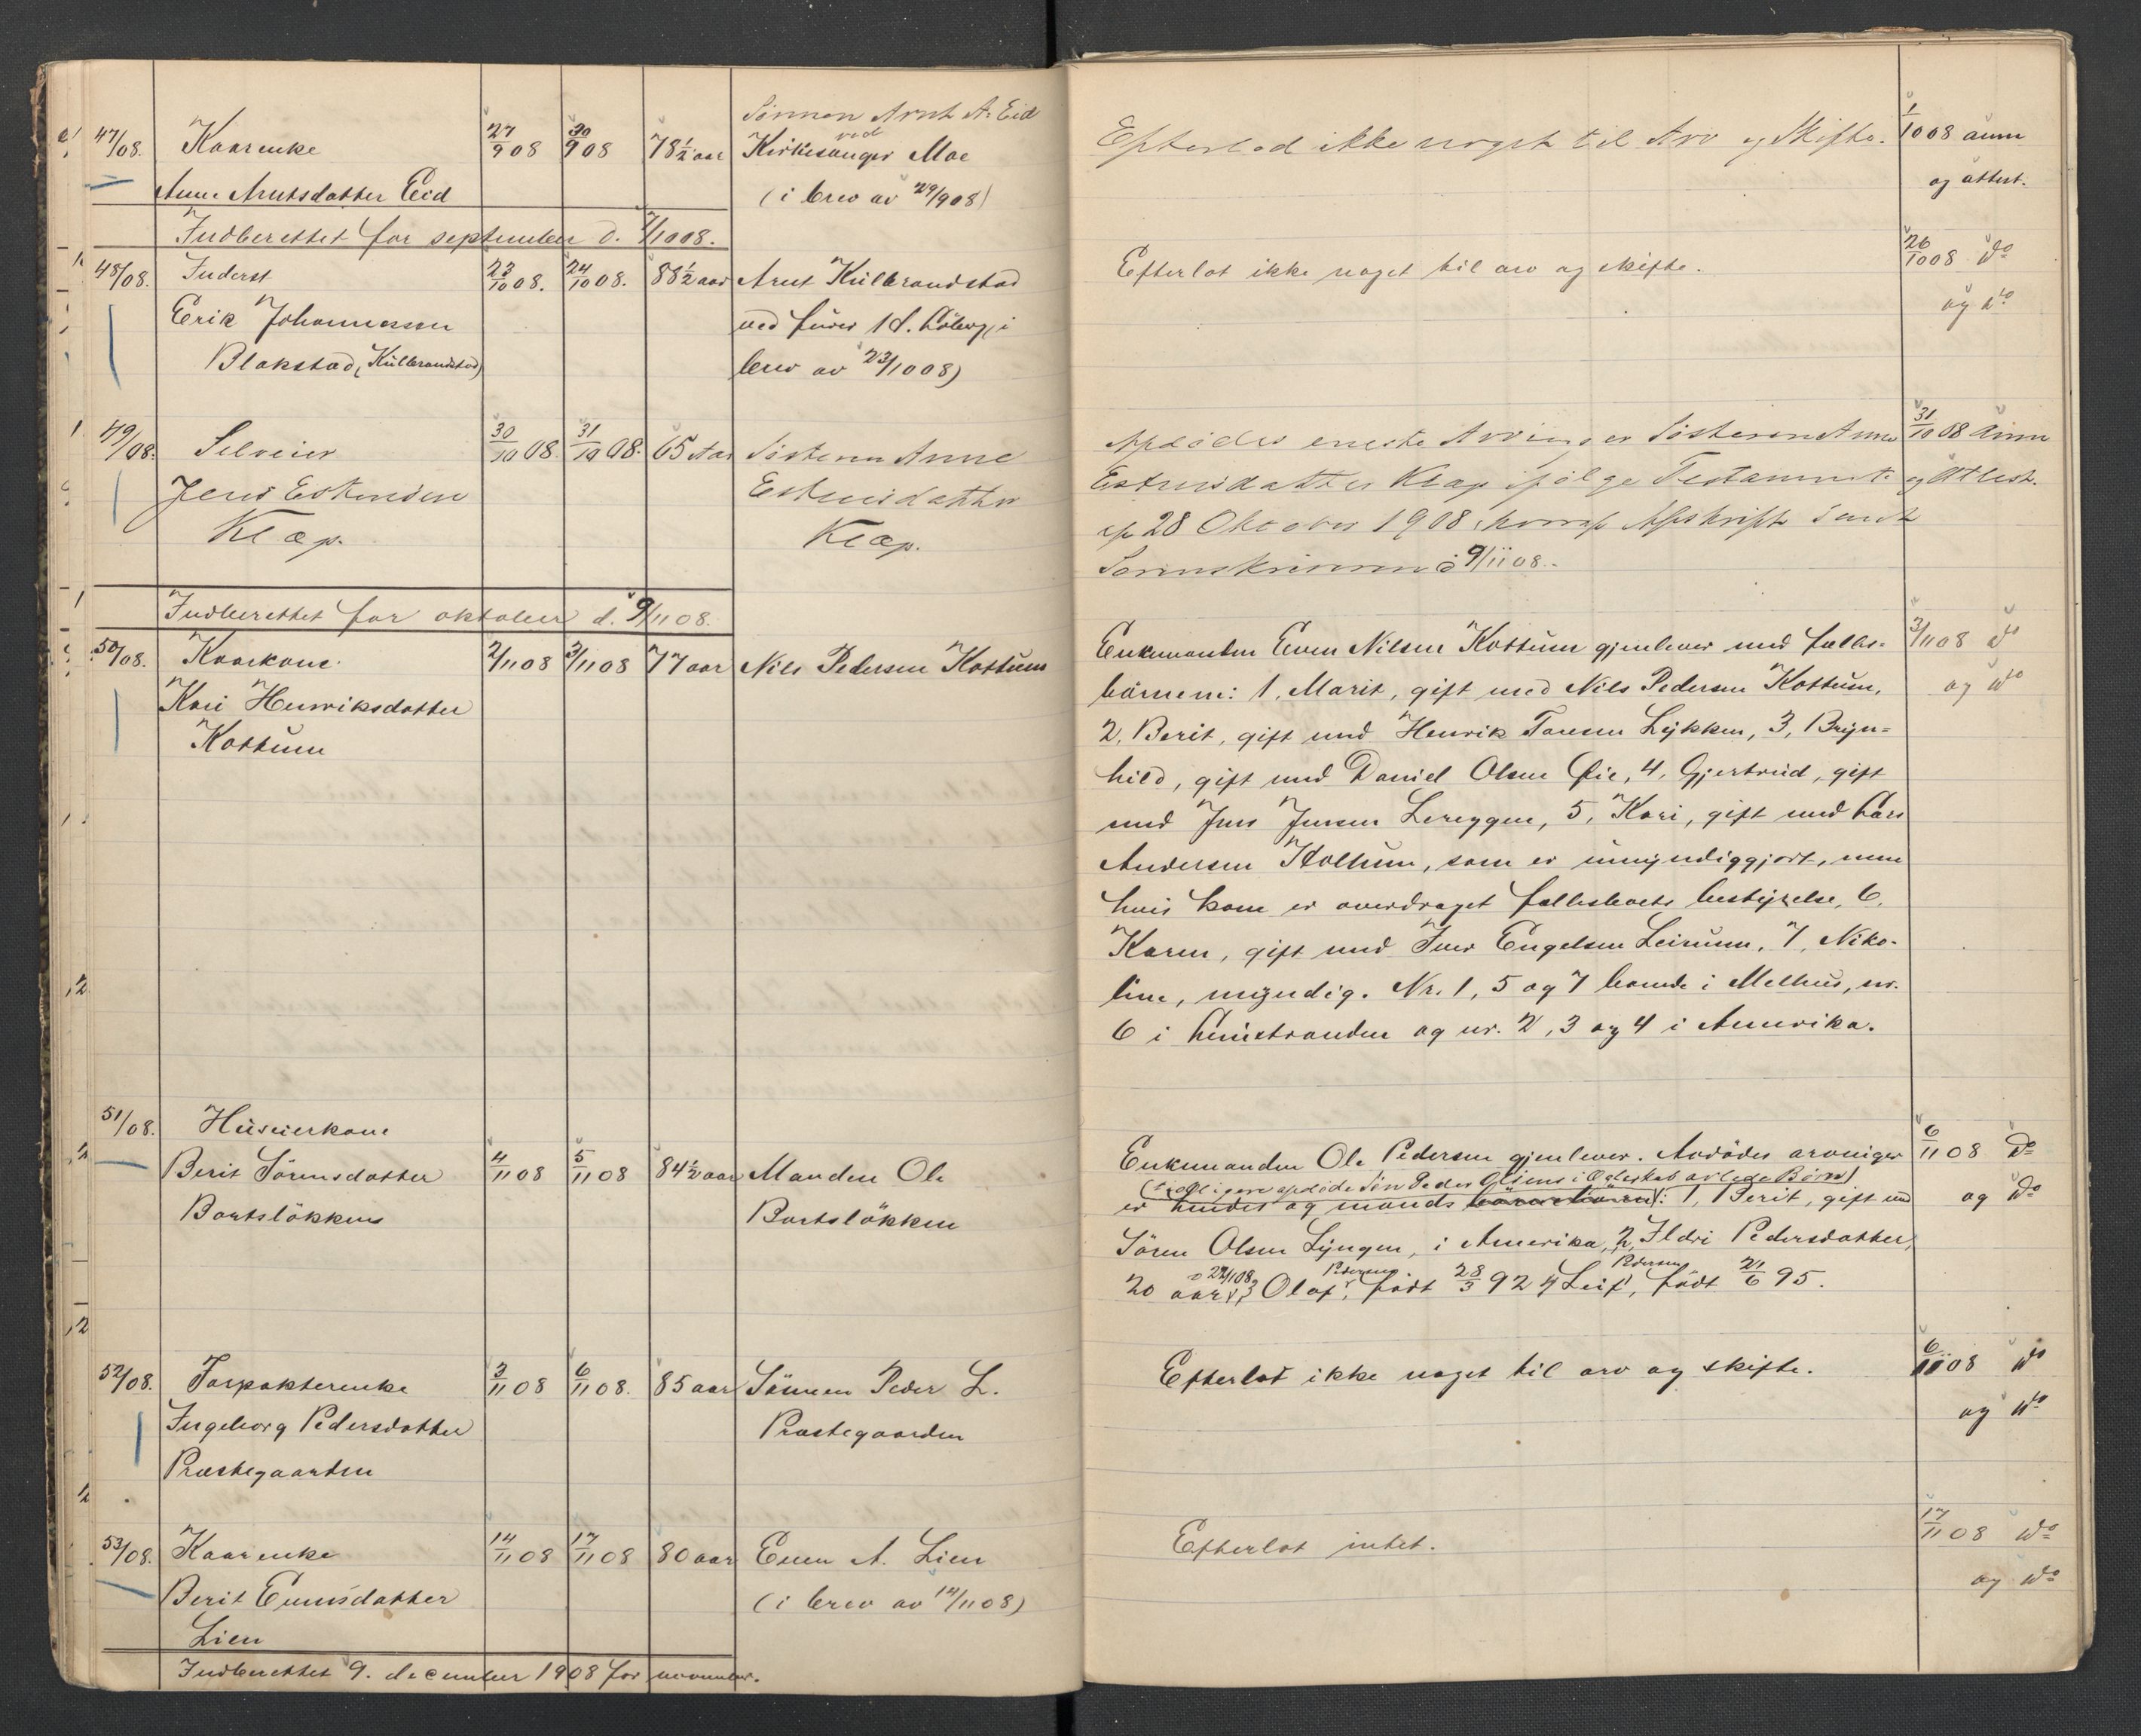 47/08. Kaarenke 27/9 08 30/9 08 78 1/2 aar Sønnen Arnt A. Eid
ved
Kirkesanger Moe
Anne Arntsdatter Eid (i brev av 29/9 08)
Efterlod ikke noget til Arv og Skifte. 1/10 08 anm
og attest.
Indberettet for september d. 7/10 08.
48/08. Inderst 22/10 08. 24/10 08. 88 1/2 aar Arnt Kulbrandstad
Erik Johannessen
Blakstad (Kulbrandstad)
brev av 23/10 08)
Efterlot ikke noget til arv og skifte. 26/10 08 do
og do
49/08. Selveier 30/10 08. 31/10 08. 65 Aar Søsteren Anne
Jens Estensen Estensdatter
Klap. Klap.
Afdødes eneste Arving er Søsteren Anne 31/10 08 Anm
Estensdatter Klap ifølge Testament og Attest.
af 28 Oktober 1908, hvoraf Afskrift sendt
Sorenskriveren d 9/11 08.
Indberettet for oktober d. 9/11 08.
50/08. Kaarkone 2/11 08 3/11 08 77 aar Nils Pedersen Kottum
Kari Henriksdatter
Kottum
Enkemanden Even Nilsen Kottum gjenlever med fælles- 3/11 08 do
børnene: 1, Marit, gift med Nils Pedersen Kottum, og do
2, Berit, gift med Henrik Larsen Lykken, 3, Bryn=
hild, gift med Daniel Olsen Øie, 4, Gjertrud, gift
med Jens Jensen Lereggen, 5, Kari, gift med Lars
Andersen Kolthum, som er umyndiggjort, men
hvis kone er overdraget fællesboets bestyrelse, 6,
Karen, gift med Iver Engelsen Leirum, 7, Niko-
line, myndig. Nr. 1, 5 og 7 boende i Melhus, nr.
6 i Leinstranden og nr. 2, 3 og 4 i Amerika.
51/08. Huseierkone
Berit Sørensdatter 4/11 08 5/11 08 84 1/2 aar Manden Ole
Bortsløkken Bortsløkken
Enkemanden Ole Pedersen gjenlever. Avdødes arvinger 6/11 08 do
(tidligere afdøde Søn Peder Olsens i Ægteskab avlede Børn)
er hendes og mands barnebørn: 1, Berit, gift med og do
Søren Olsen Lyngen, i Amerika, 2, Ildri Pedersdatter,
20 aar, 3, Olaf Pedersen, født 28/3 92 4, Leif Pedersen, født 21/6 95.
52/08. Forpakterenke 3/11 08 6/11 08. 85 aar Sønnen Peder L.
Ingeborg Pedersdatter Præstegaarden
Præstegaarden
Efterlot ikke noget til arv og skifte. 6/11 08 do
og do
53/08. Kaarenke 14/11 08 17/11 08 80 aar Even A. Lien
Berit Evensdatter (i brev av 14/11 08)
Lien
Efterlot intet. 17/11 08 do
og do
Indberettet 9. december 1908 for november.